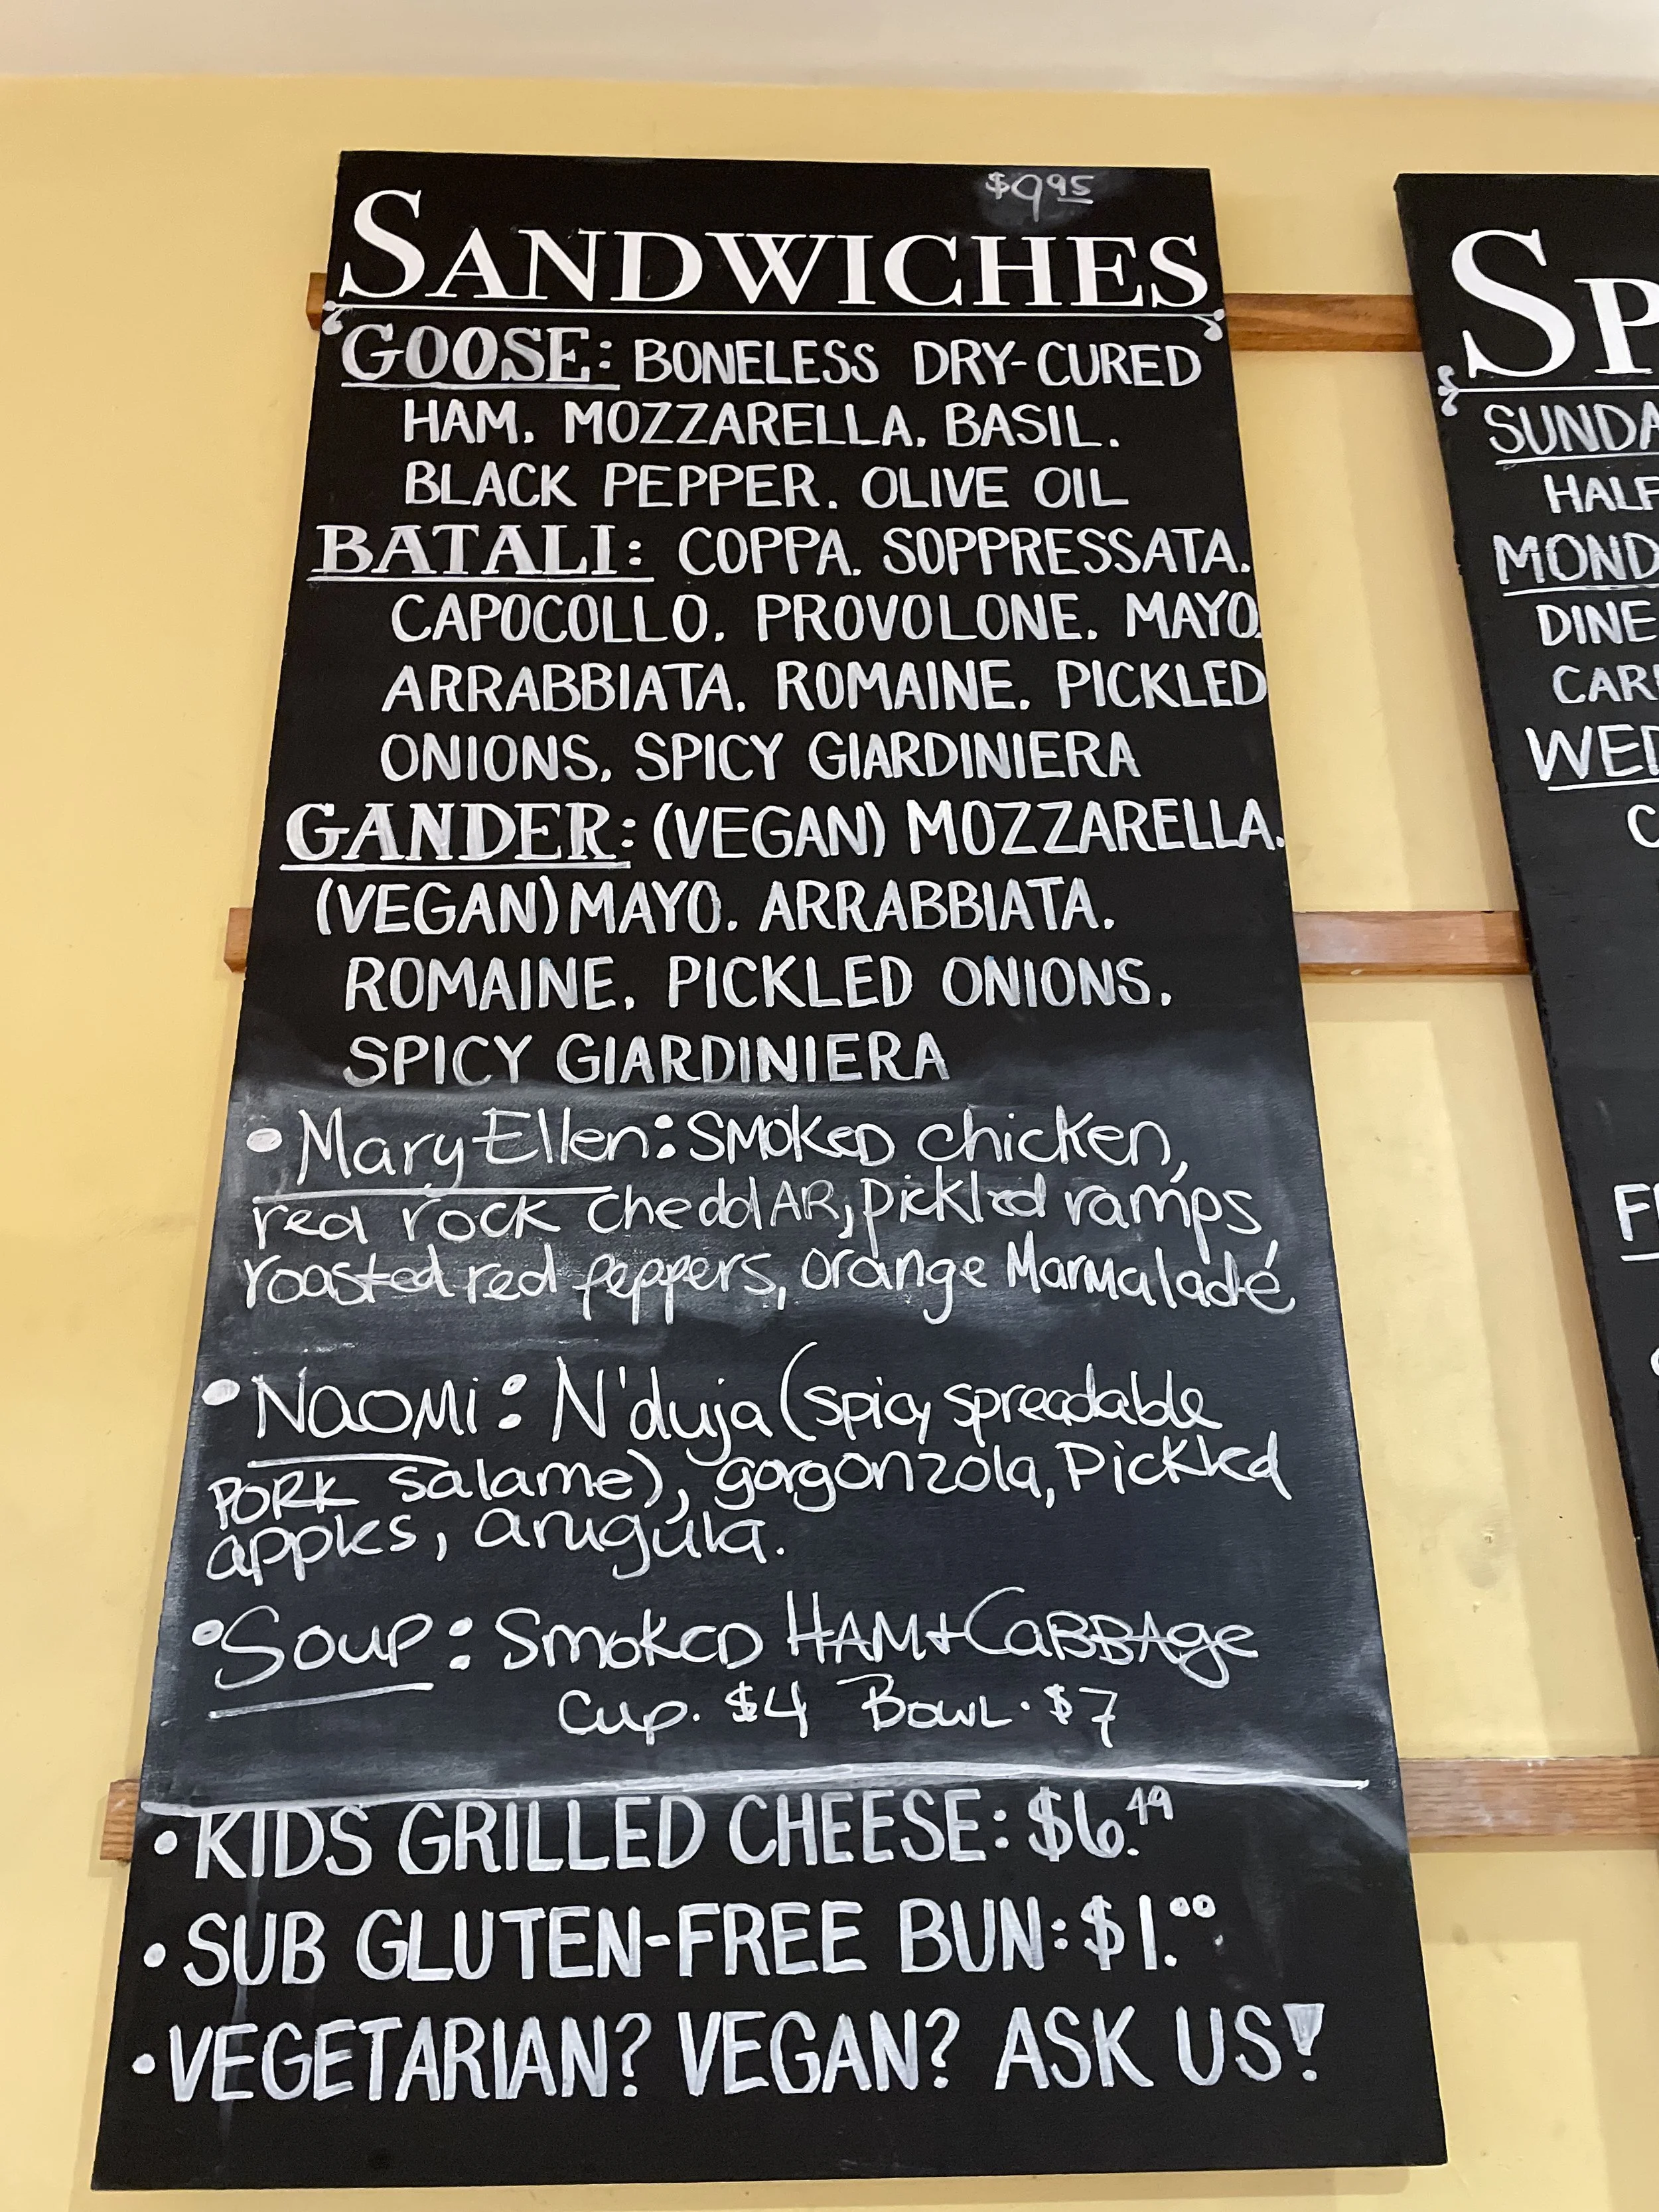 $9.95
SANDWICHES
GOOSE: BONELESS DRY-CURED
HAM. MOZZARELLA. BASIL.
BLACK PEPPER. OLIVE OIL
BATALI: COPPA. SOPPRESSATA.
CAPOCOLLO. PROVOLONE. MAYO.
ARRABBIATA. ROMAINE. PICKLED
ONIONS. SPICY GIARDINIERA
GANDER: (VEGAN) MOZZARELLA.
(VEGAN) MAYO. ARRABBIATA.
ROMAINE. PICKLED ONIONS.
SPICY GIARDINIERA
• Mary Ellen: SMOKED chicken,
red rock cheddAR, pickled ramps,
roasted red peppers, orange Marmaladé
• NAOMi: N'duja (spicy spreadable
PORK salame), gorgonzola, Pickled
apples, arugula.
• Soup: SmoKED HAM + CaBBAge
Cup. $4 BOWL. $7
• KIDS GRILLED CHEESE: $6.49
• SUB GLUTEN-FREE BUN: $1.00
• VEGETARIAN? VEGAN? ASK US!
SP
SUNDA
HALF
MOND
DINE
CAR
WED
C
F